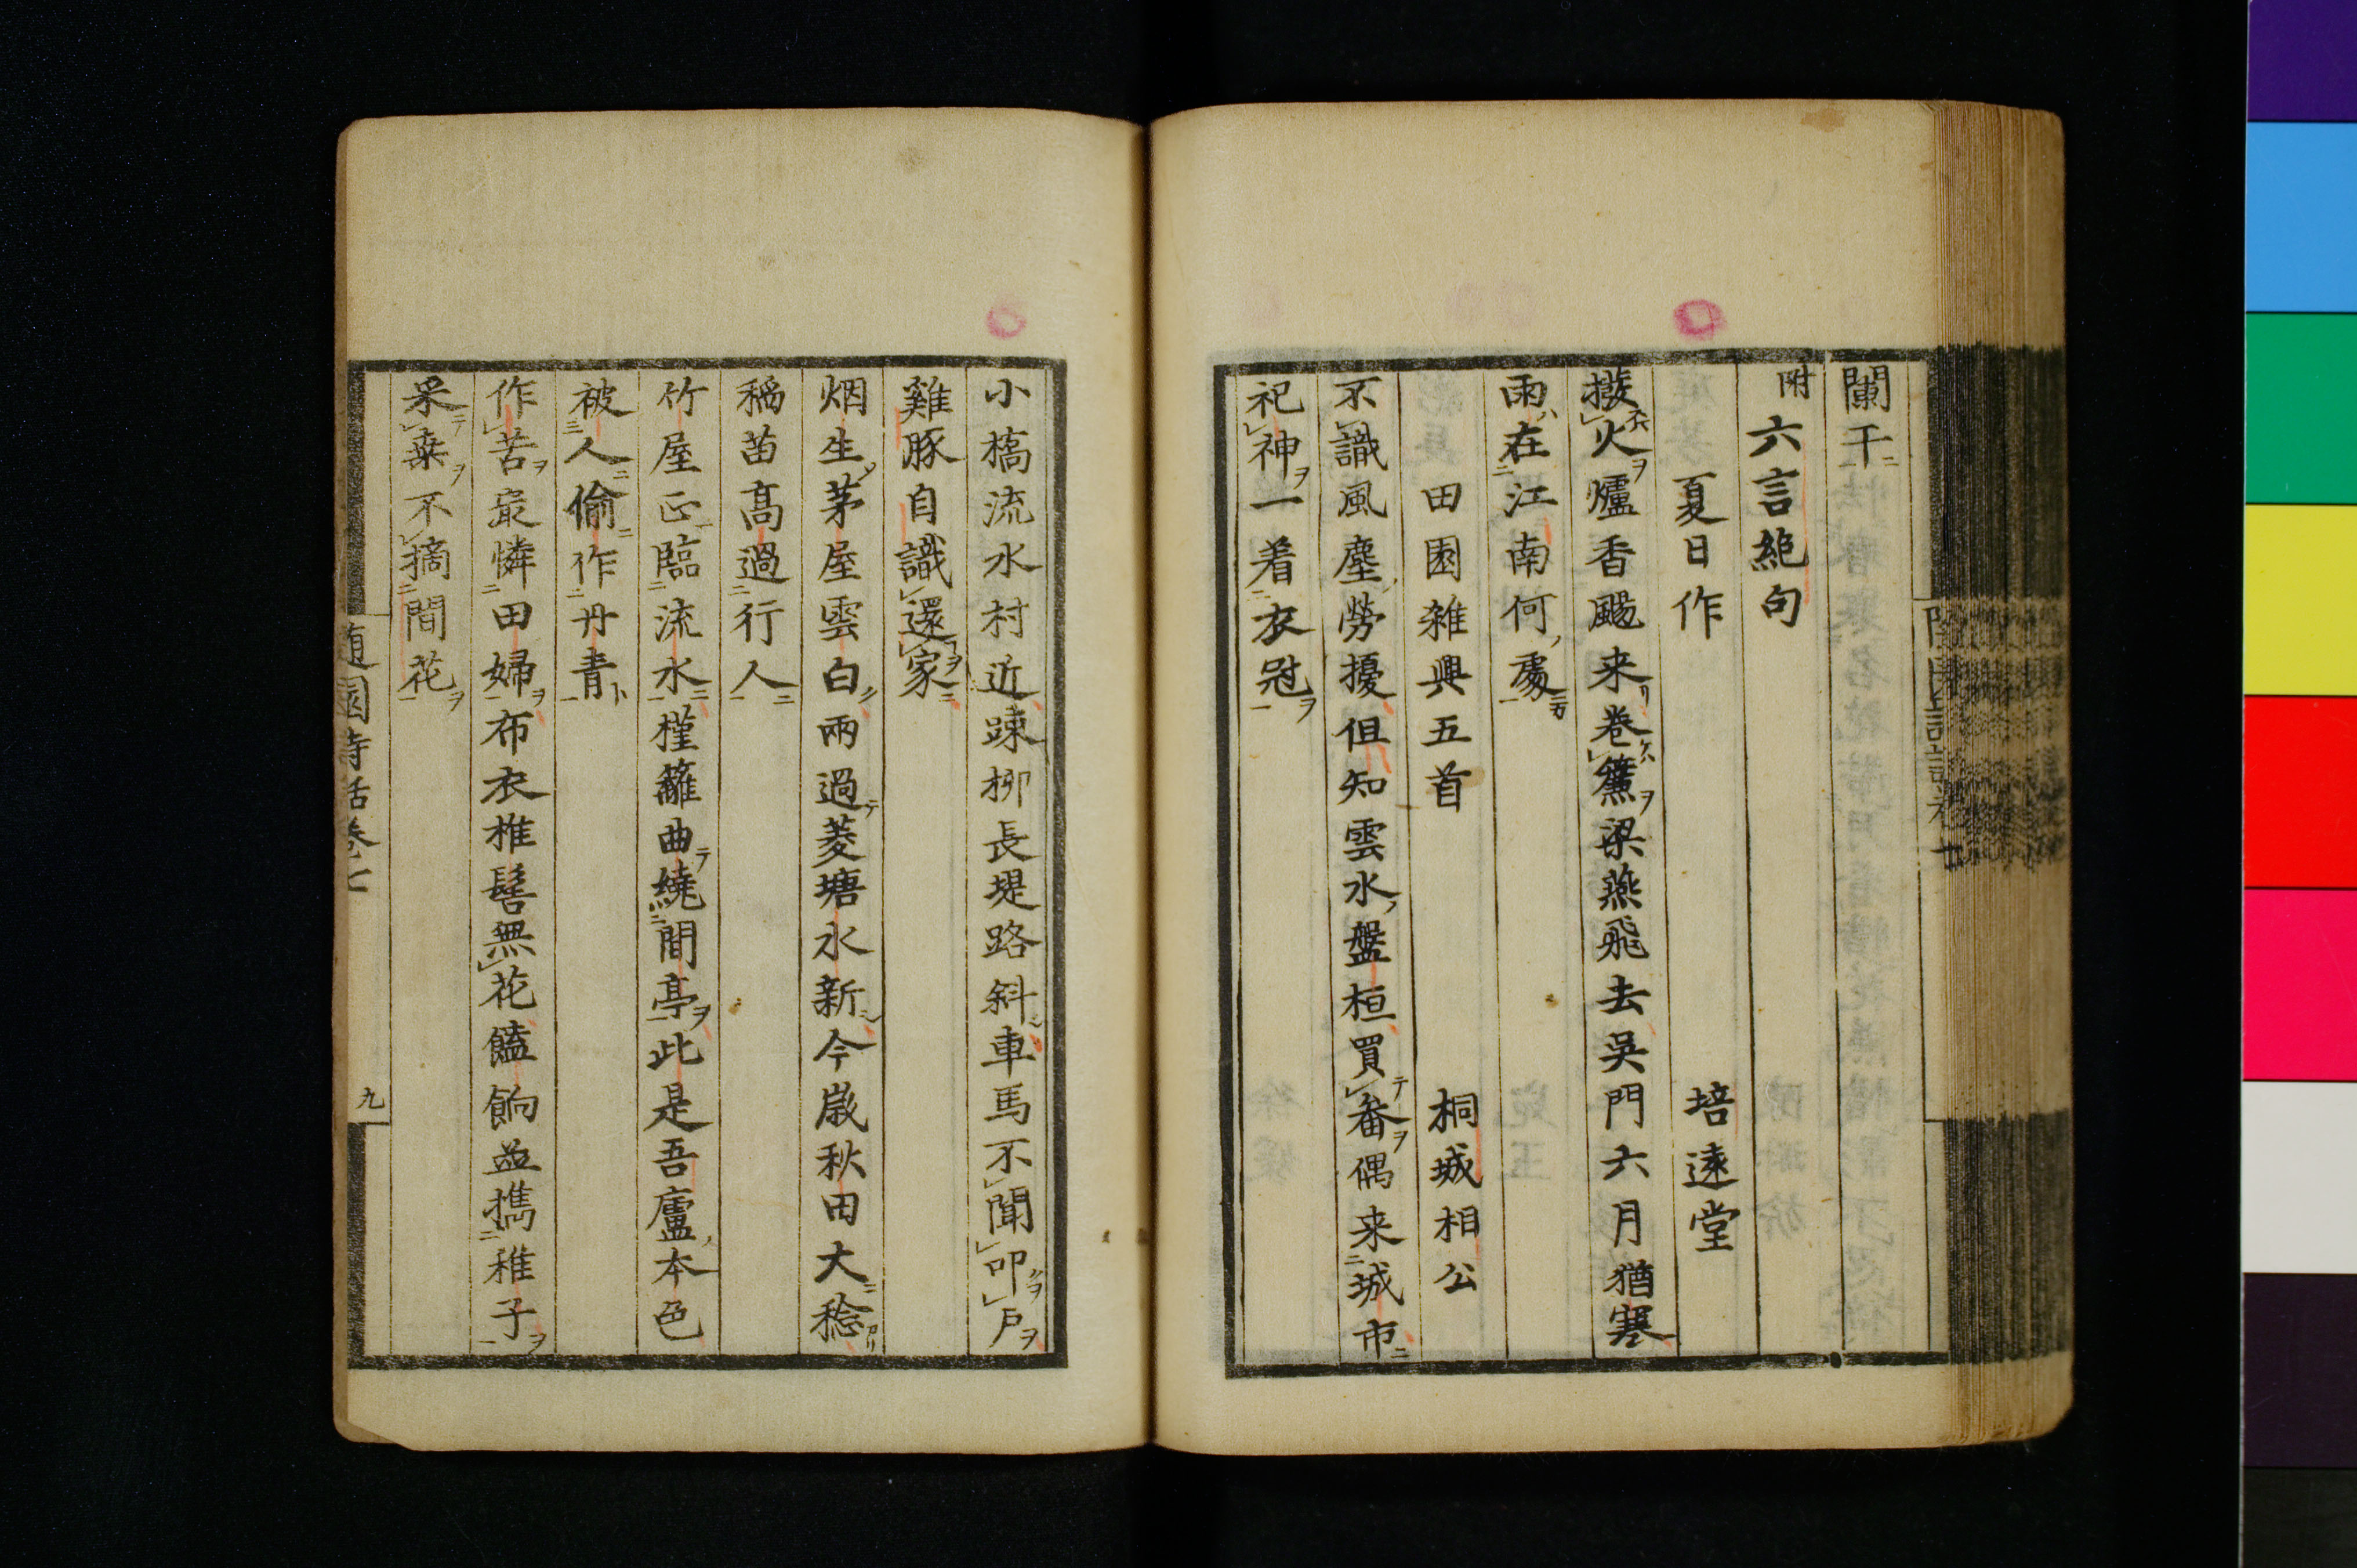 闌干
附
六言絶句
夏日作　培遠堂
撥火爐香颺来巻簾梁燕飛去吳門六月猶寒
雨在江南何處
田園雑興五首　桐城相公
不識風塵勞擾但知雲水盤桓買畨偶来城市
祀神一着衣冠
小橋流水村近踈柳長堤路斜車馬不聞叩戸
雞豚自識還家
烟生茅屋雲白雨過菱塘水新今嵗秋田大稔
稲苗髙過行人
竹屋正臨流水槿籬曲繞間亭此是吾廬本色
被人偷作丹青
作苦最憐田婦布衣椎髻無花饁餉並携稚子
采桑不摘間花
随園詩話巻七
九